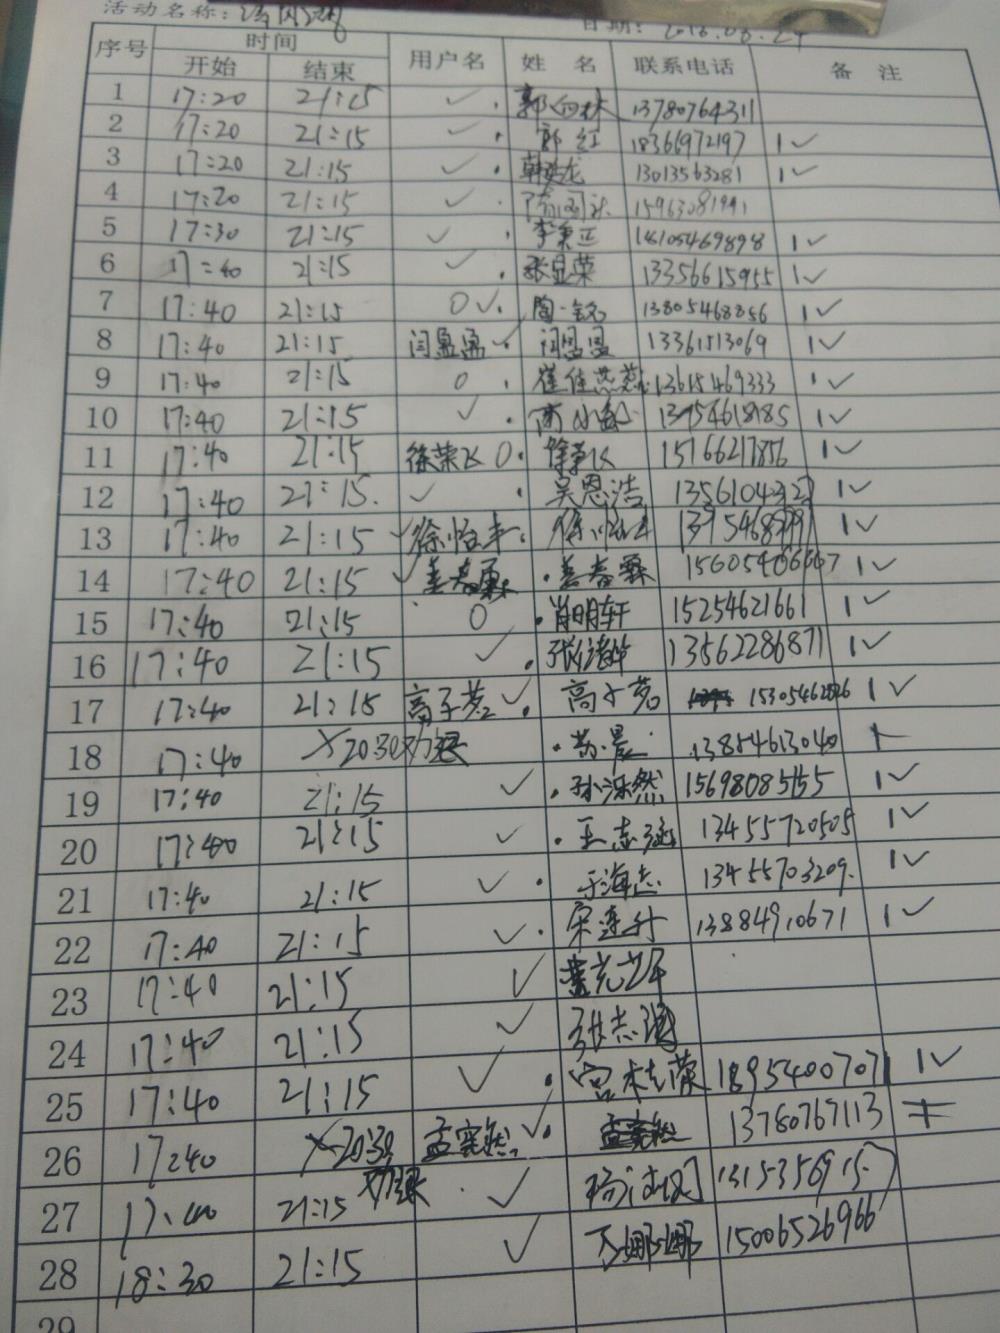 活动名称:
日期: 2018.08.24
序号 时间 用户名 姓 名 联系电话 备 注
开始 结束
1 17:20 21:15 ✓ 13780764311
2 17:20 21:15 ✓ 郭红 18366972197 1✓
3 17:20 21:15 ✓ 13013563281 1✓
4 17:20 21:15 ✓ 15963081991
5 17:30 21:15 ✓ 李秉正 18105469898 1✓
6 17:40 21:15 ✓ 张显荣 13356615955 1✓
7 17:40 21:15 0✓ 陶铭 13805468856 1✓
8 17:40 21:15 闫盈盈 ✓ 闫盈盈 13361513069 1✓
9 17:40 21:15 0 崔佳燕 13615469333 1✓
10 17:40 21:15 ✓ 13754618185 1✓
11 17:40 21:15 徐荣飞 0 徐荣飞 15766217856 1✓
12 17:40 21:15 ✓ 吴恩浩 1✓
13 17:40 21:15 ✓徐怡丰 1✓
14 17:40 21:15 ✓姜春霖 姜春霖 1✓
15 17:40 21:15 0 肖明轩 15254621661 1✓
16 17:40 21:15 ✓ 13562286871 1✓
17 17:40 21:15 高子茗 ✓ 高子茗 1✓
18 17:40 ×20:30劝退 苏晨 13854613040
19 17:40 21:15 ✓ 孙泺然 15698085155 1✓
20 17:40 21:15 ✓ 王志强 13455720505 1✓
21 17:40 21:15 ✓ 于海志 13455703209 1✓
22 17:40 21:15 ✓ 宋连升 13884910671 1✓
23 17:40 21:15 ✓
24 17:40 21:15 ✓ 张志强
25 17:40 21:15 ✓ 宫桂荣 18954007071 1✓
26 17:40 ×20:30 劝退 孟宪然 ✓ 孟宪然 13780767113
27 17:40 21:15 ✓
28 18:30 21:15 ✓ 万娜娜 15006526966
29